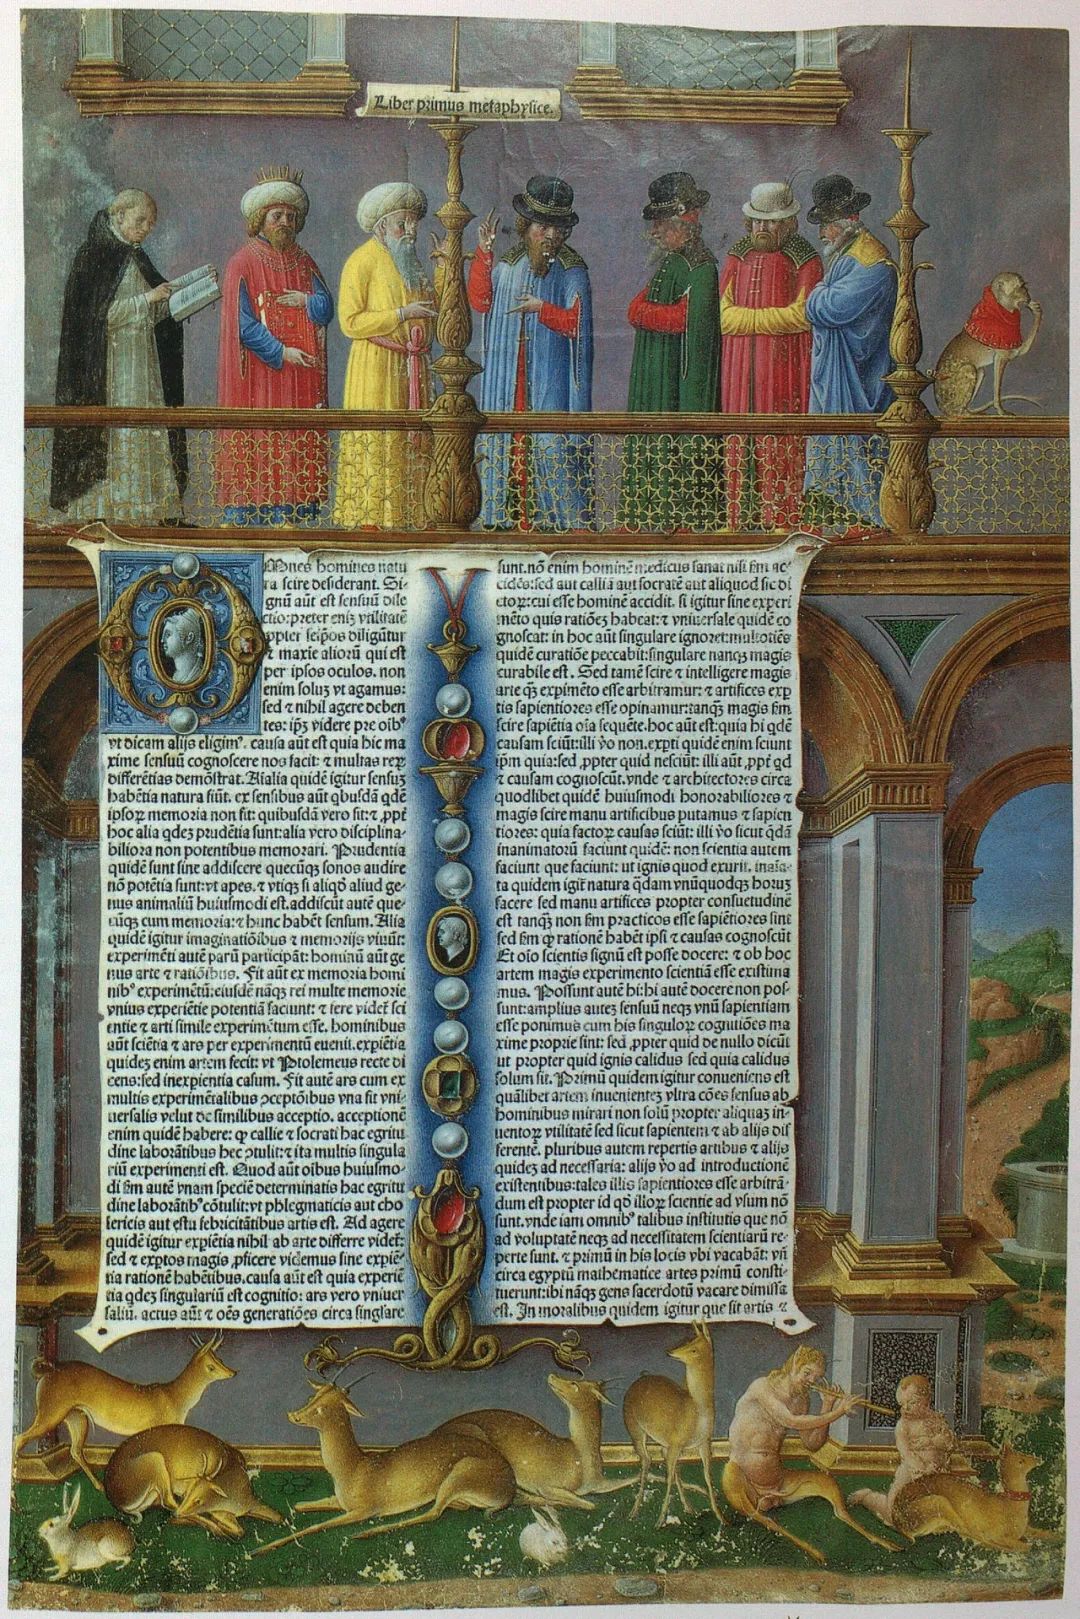 Liber primus metaphysice.
OMnes homines natu
ra scire desiderant. Si-
gnū aūt est sensuū dile
ctio: preter eniȝ vtilitatē
ꝓpter seip̄os diligūtur
⁊ maxie aliorū qui est
per ipsos oculos. non
enim soluȝ vt agamus:
sed ⁊ nihil agere deben
tes: ip̄ȝ videre pre oibꝰ
vt dicam alijs eligimꝰ. causa aūt est quia hic ma
xime sensuū cognoscere nos facit: ⁊ multas reꝝ
differētias demōstrat. Aīalia quidē igitur sensuȝ
habētia natura fiūt. ex sensibus aūt qbusdā qdē
ipsoꝝ memoria non fit: quibusdā vero fit: ⁊ ꝓpt̄
hoc alia qdeȝ prudētia sunt: alia vero disciplina-
biliora non potentibus memorari. Prudentia
quidē sunt sine addiscere quecūqȝ sonos audire
nō potētia sunt: vt apes. ⁊ vtiqȝ si aliqd̄ aliud ge-
nus animaliū huiusmodi est. addiscūt autē que-
cūqȝ cum memoria: ⁊ hunc habēt sensum. Alia
quidē igitur imaginatiōibus ⁊ memorijs viuūt:
experimēti autē parū participāt: hominū aūt ge
nus arte ⁊ ratiōibus. Fit aūt ex memoria homi
nibꝰ experimētū: eiusdē nāqȝ rei multe memorie
vnius experiētie potentiā faciunt: ⁊ fere videt̄ sci
entie ⁊ arti simile experimētum esse. hominibus
aūt sciētia ⁊ ars per experimentū euenit. exꝑiētia
quideȝ enim artem fecit: vt Ptolemeus recte di
cens: sed inexꝑientia casum. Fit autē ars cum ex
multis experimētalibus ↄceptōibus vna fit vni-
uersalis velut de similibus acceptio. acceptionē
enim quidē habere: qꝙ callie ⁊ socrati hac egritu
dine laborātibus hec ↄtulit: ⁊ ita multis singula
riū experimenti est. Quod aūt oibus huiusmo-
di s̄m autē vnam speciē determinatis hac egritu
dine laborātibꝰ cōtulit: vt phlegmaticis aut cho
lericis aut estu febricitātibus artis est. Ad agere
quidē igitur exꝑiētia nihil ab arte differre videt̄:
sed ⁊ exptos magis ꝓficere videmus sine exꝑiē-
tia rationē habētibus. causa aūt est quia experiē
tia qdeȝ singulariū est cognitio: ars vero vniuer
saliū. actus aūt ⁊ oēs generatiōes circa singlare
sunt. nō enim hominē medicus sanat nisi s̄m ac-
cidēs: sed aut calliā aut socratē aut aliquod sic di
ctoꝝ: cui esse hominē accidit. si igitur sine experi
mēto quis ratiōeȝ habeat: ⁊ vniuersale quidē co
gnoscat: in hoc aūt singulare ignoret: multotiēs
quidē curatiōe peccabit: singulare nanqȝ magis
curabile est. Sed tamē scire ⁊ intelligere magis
arte qȝ expimēto esse arbitramur: ⁊ artifices exꝑ
tis sapientiores esse opinamur: tanqȝ magis s̄m
scire sapiētia oīa sequēte. hoc aūt est: quia hi qdē
causam sciūt: illi v̄o non. exꝑti quidē enim sciunt
ip̄m quia: sed ꝓpter quid nesciūt: illi aūt ꝓpt̄ qd
⁊ causam cognoscūt. vnde ⁊ architectores circa
quodlibet quidē huiusmodi honorabiliores ⁊
magis scire manu artificibus putamus ⁊ sapien
tiores: quia factoꝝ causas sciūt: illi v̄o sicut qdā
inanimatorū faciunt quidē: non scientia autem
faciunt que faciunt: ut ignis quod exurit. inaīa-
ta quidem igit̄ natura qdam vnūquodqȝ horuȝ
facere sed manu artifices propter consuetudinē
est tanqȝ non s̄m practicos esse sapiētiores sint
sed s̄m qꝙ rationē habēt ipsi ⁊ causas cognoscūt
Et oīo scientis signū est posse docere: ⁊ ob hoc
artem magis experimento scientiā esse existima
mus. Possunt autē hi: hi autē docere non pos-
sunt: amplius auteȝ sensuū neqȝ vnū sapientiam
esse ponimus cum his singuloꝝ cognitiōes ma
xime proprie sint: sed ꝓpter quid de nullo dicūt
ut propter quid ignis calidus sed quia calidus
solum sit. Primū quidem igitur conueniens est
quālibet artem inuenientes vltra cōes sensus ab
hominibus mirari non solū propter aliquaȝ in-
uentoꝝ vtilitatē sed sicut sapientem ⁊ ab alijs dif
ferentē. pluribus autem repertis artibus ⁊ alijs
quideȝ ad necessaria: alijs v̄o ad introductionē
existentibus: tales illis sapientiores esse arbitrā-
dum est propter id qd̄ illoꝝ scientie ad vsum nō
sunt. vnde iam omnibꝰ talibus institutis que nō
ad voluptatē neqȝ ad necessitatem scientiarū re-
perte sunt. ⁊ primū in his locis vbi vacabāt: vn̄
circa egyptū mathematice artes primū consti-
tuerunt: ibi nāqȝ gens sacerdotū vacare dimissa
est. In moralibus quidem igitur que sit artis ⁊